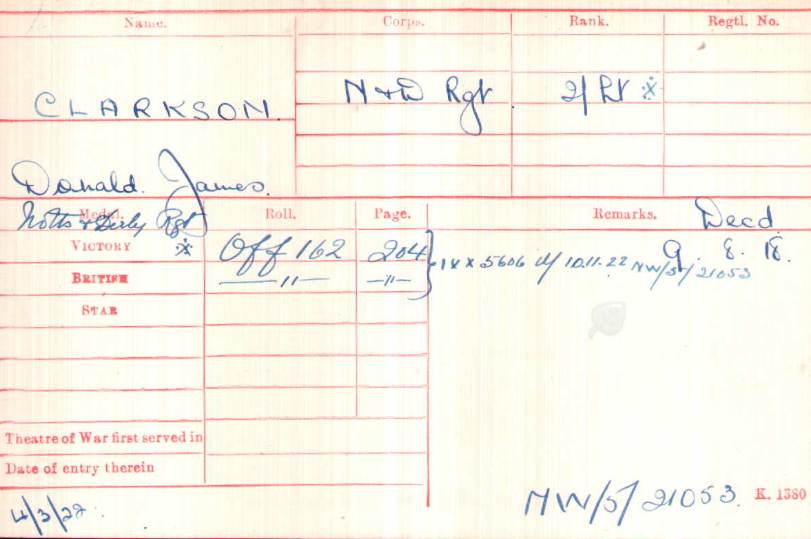 Name. Corps. Rank. Regtl. No.
CLARKSON. N+D Rgt. 2/Lt ※
Donald. James.
Notts & Derby Rgt
Medal. Roll. Page. Remarks.
Decd
9. 8. 18.
VICTORY ※ Off 162 204
BRITISH —〃— —〃—
1V x 5606 d/ 10.11.22 NW/5/21053
STAR
Theatre of War first served in
Date of entry therein
4/3/22
NW/5/21053. K. 1380